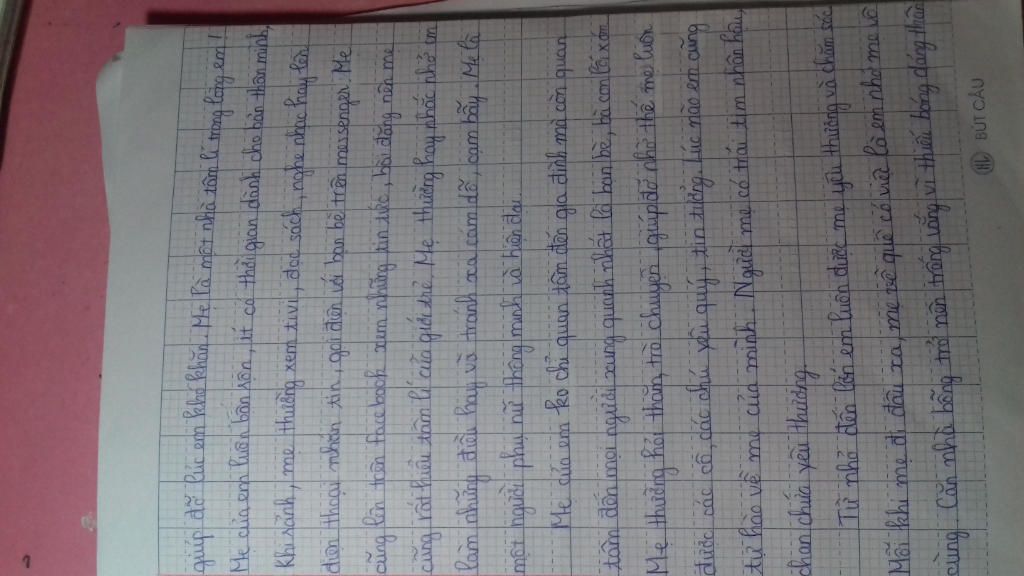 giúp đỡ lúc em khó khăn. Mẹ là một nhà tâm lí trong lòng em!
Mẹ của em luôn bận rộn, ít có thời gian dành cho bản thân mình,
khi rảnh, mẹ thường xem ti vi, đọc sách, nghe nhạc hay lấy
điện thoại nhắn tin, gọi điện với bạn bè trên messenger. Mẹ
cũng lên trên facebook xem những tin tức, bài đăng nên mẹ
cũng rất hiểu tâm lí của giới trẻ. Mẹ thường hay nhắc nhở em
làm những điều hay và tránh xa cám dỗ, cạm bẫy. Mẹ là
một người phụ nữ thông minh và hiện đại.
Mẹ của em ko chỉ quan tâm đến gia đình mà còn quan
tâm đến mọi người xung quanh nhất là bạn bè, bà con lối xóm.
Mẹ thường hỏi thăm, trò chuyện, giúp đỡ nhờ thế mẹ luôn
được các cô, các chú yêu quý, tin tưởng. Lúc nào em cũng
tự hào về mẹ của mình. Người mẹ có trái tim nhân hậu,
chan chứa yêu thương.
Từ nhỏ đến lớn em luôn được mẹ yêu thương và chăm sóc
Mỗi khi mẹ đi đâu xa, mẹ về quê có việc là em nhớ mẹ vô
cùng. Căn nhà bỗng trở nên trống vắng vì thiếu bóng dáng thân
BÚT CÂU